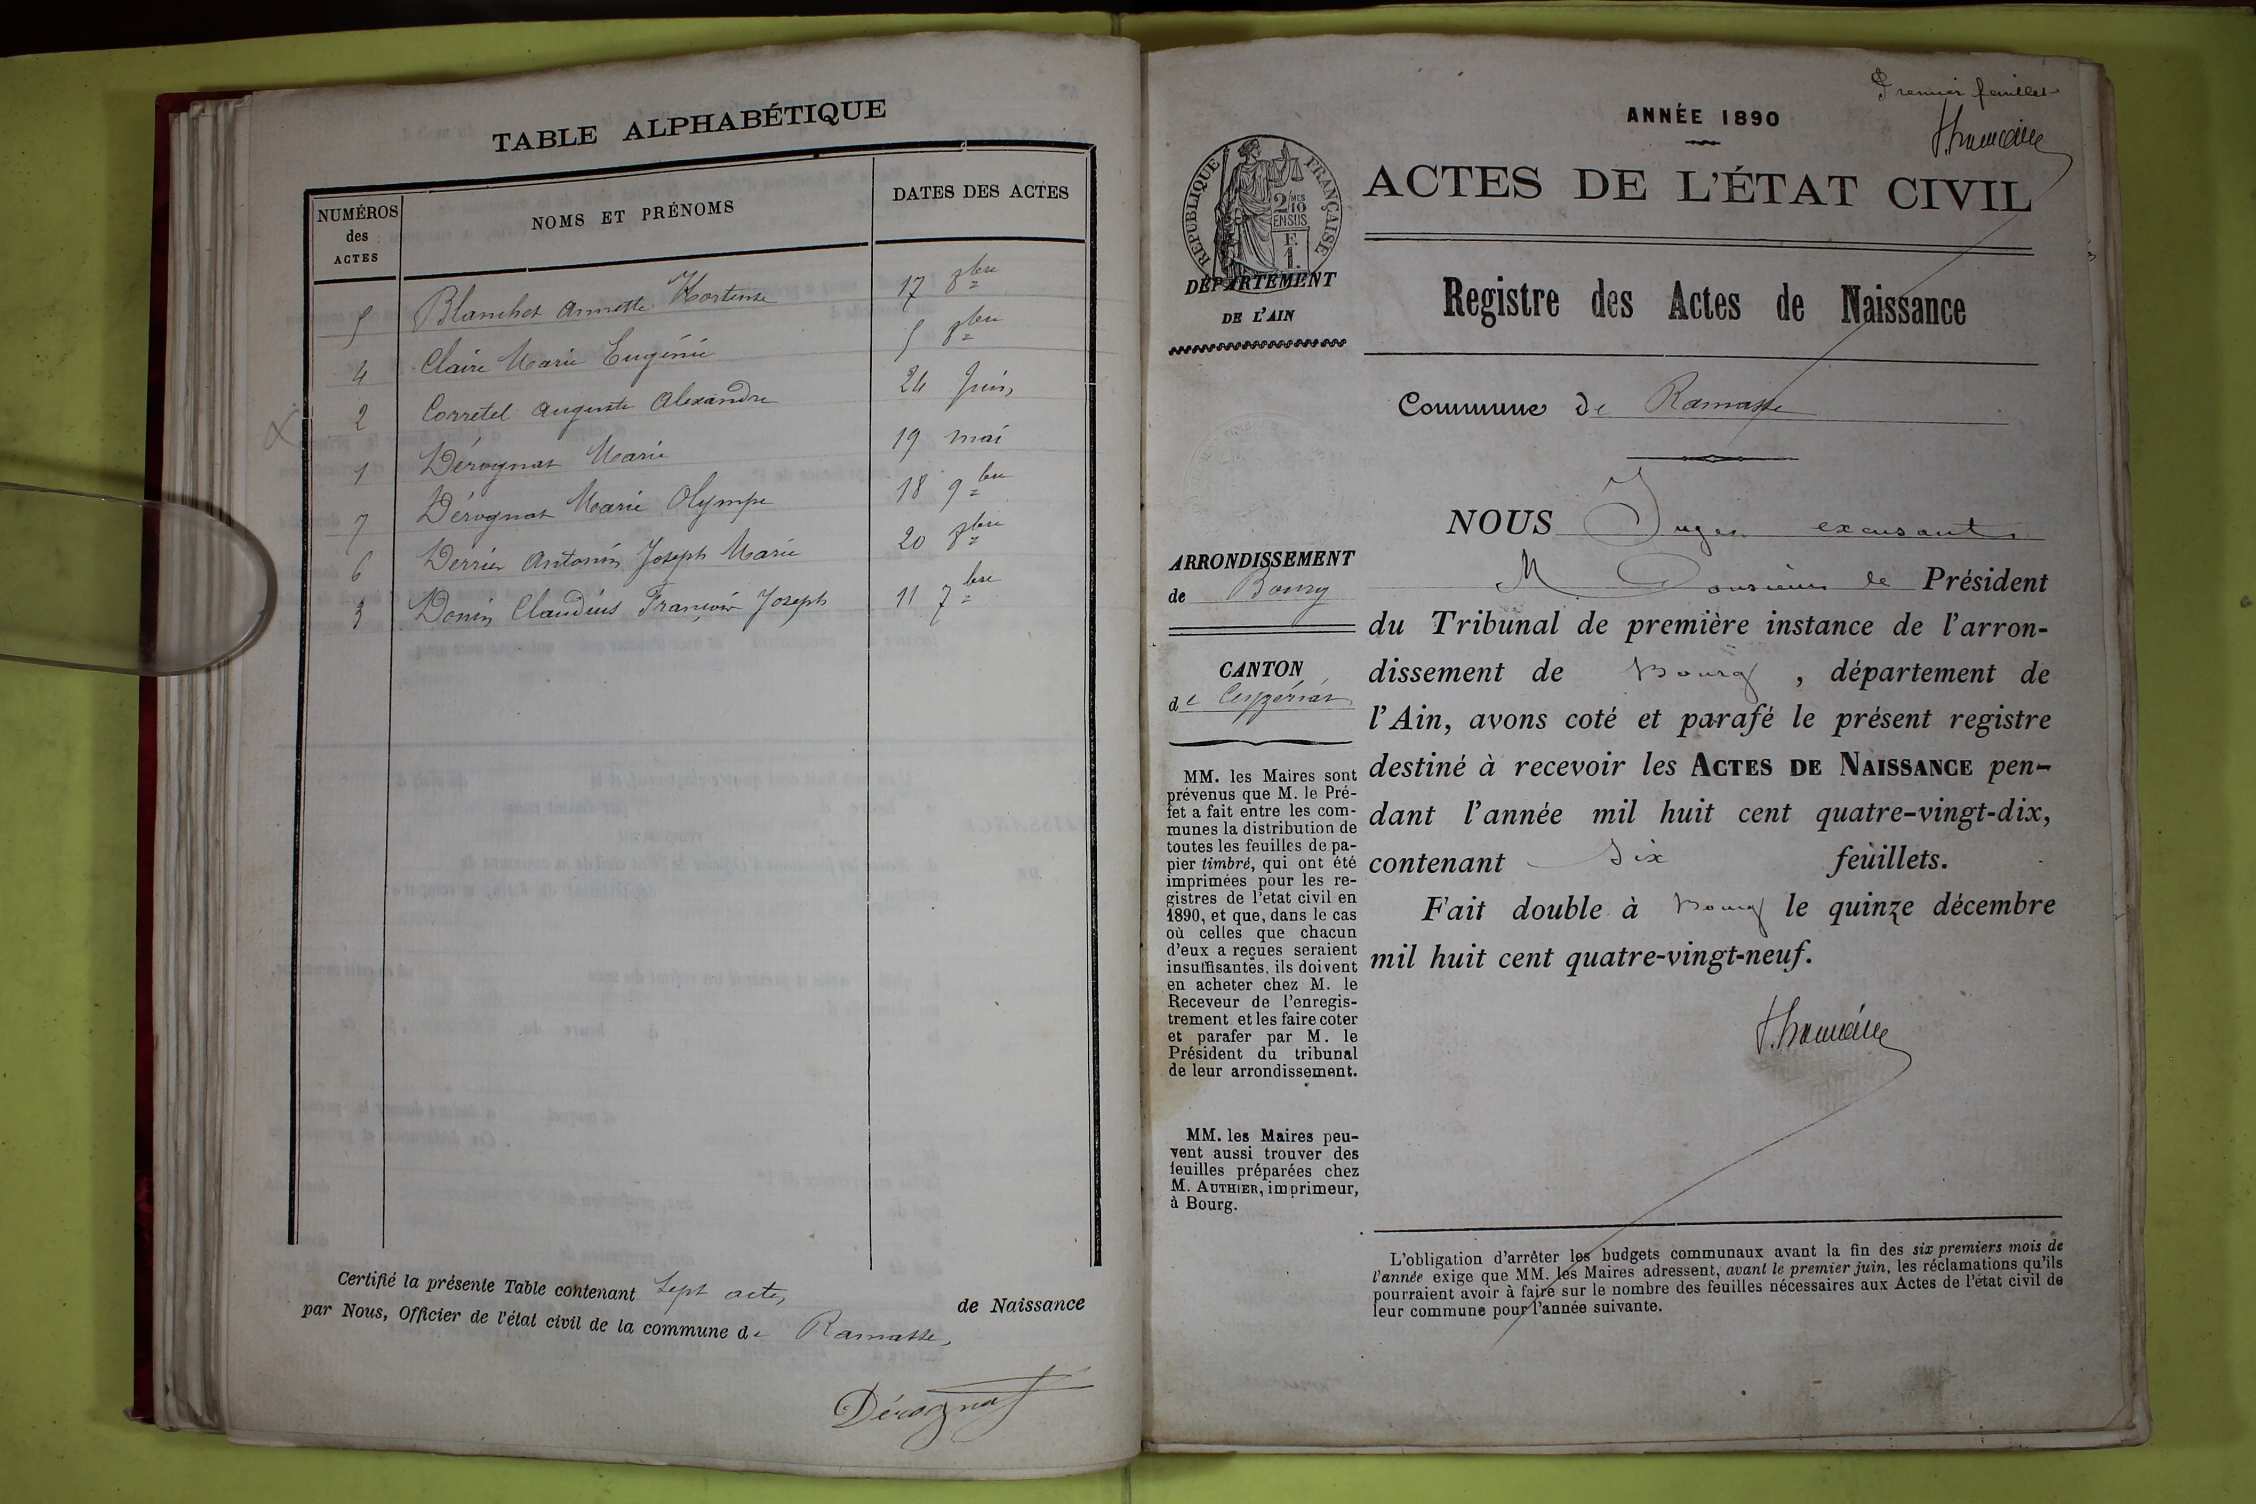 TABLE ALPHABÉTIQUE
NUMÉROS des ACTES
NOMS ET PRÉNOMS
DATES DES ACTES
5 Blanchet Annette Hortense 17 8bre
4 Claire Marie Eugénie 5 8bre
2 Corretel Auguste Alexandre 24 Juin
1 Dérognat Marie 19 mai
7 Dérognat Marie Olympe 18 9bre
6 Derrier Antonin Joseph Marie 20 8bre
3 Donin Claudius François Joseph 11 7bre
Certifié la présente Table contenant Sept actes de Naissance
par Nous, Officier de l'état civil de la commune de Ramasse,
Dérognat
Premier feuillet
ANNÉE 1890
ACTES DE L'ÉTAT CIVIL
RÉPUBLIQUE FRANÇAISE
2/10 MES
EN SUS
F.
1.
DÉPARTEMENT
DE L'AIN
Registre des Actes de Naissance
Commune de Ramasse
ARRONDISSEMENT
de Bourg
CANTON
de Ceyzériat
MM. les Maires sont
prévenus que M. le Pré-
fet a fait entre les com-
munes la distribution de
toutes les feuilles de pa-
pier timbré, qui ont été
imprimées pour les re-
gistres de l'etat civil en
1890, et que, dans le cas
où celles que chacun
d'eux a reçues seraient
insuffisantes, ils doivent
en acheter chez M. le
Receveur de l'enregis-
trement et les faire coter
et parafer par M. le
Président du tribunal
de leur arrondissement.
MM. les Maires peu-
vent aussi trouver des
feuilles préparées chez
M. AUTHIER, imprimeur,
à Bourg.
NOUS Juge excusant
M le Président
du Tribunal de première instance de l'arron-
dissement de Bourg, département de
l'Ain, avons coté et parafé le présent registre
destiné à recevoir les ACTES DE NAISSANCE pen-
dant l'année mil huit cent quatre-vingt-dix,
contenant Six feuillets.
Fait double à Bourg le quinze décembre
mil huit cent quatre-vingt-neuf.
L'obligation d'arrêter les budgets communaux avant la fin des six premiers mois de
l'année exige que MM. les Maires adressent, avant le premier juin, les réclamations qu'ils
pourraient avoir à faire sur le nombre des feuilles nécessaires aux Actes de l'état civil de
leur commune pour l'année suivante.